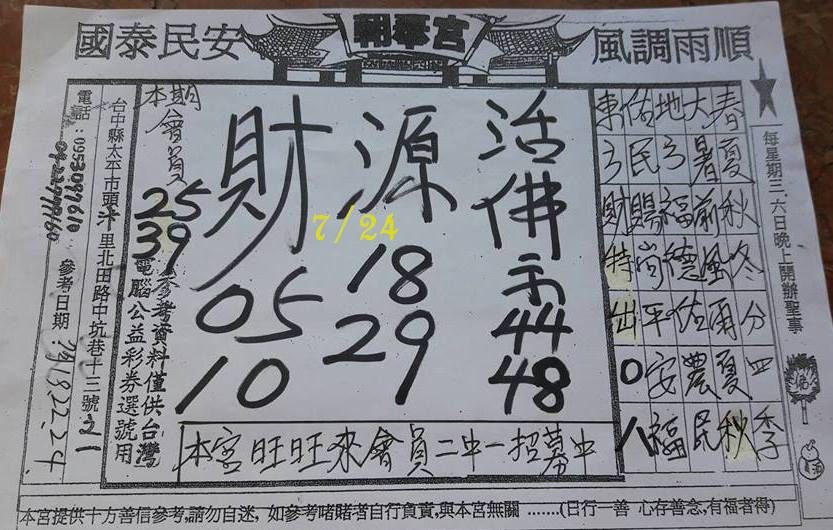 順雨調風
朝奉宮
安民泰國
每星期三.六日晚上開辦聖事
春夏秋冬分四季
大暑前風雨夏秋
地ㄋ福德佑農民
佑民賜
平安福
東ㄋ財特出0八
活佛示
44
48
源
18
29
財
05
10
7/24
本期會員
25
39
參考資料僅供台灣
電腦公益彩券選號用
台中縣太平市頭汴里北田路中坑巷十三號之1
參考日期:
電話:0953097610
本宮旺旺來會員二中一招募中
本宮提供十方善信參考,請勿自迷, 如參考啫賭者自行負責,與本宮無關 ......(日行一善 心存善念,有福者得)